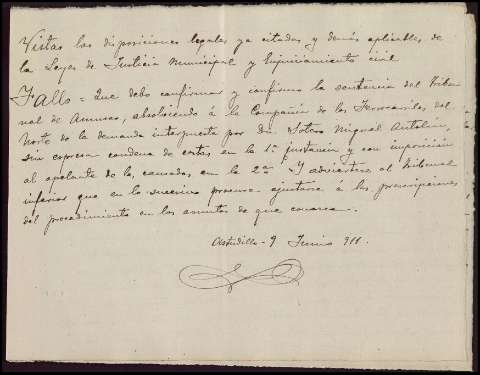 Vistas las disposiciones legales ya citadas y demás aplicables de
la Leyes de Justicia Municipal y Enjuiciamiento civil
Fallo = Que debo confirmar y confirmo la sentencia del Tribu
nal de Amusco, absolviendo á la Compañia de los Ferrocarriles del
Norte de la demanda interpuesta por Dn. Sotero Miguel Antolin,
sin expresa condena de costas en la 1ª instancia y con imposición
al apelante de las causadas en la 2ª Y adviertase al Tribunal
inferior que en lo sucesivo procure ajustarse á las prescripciones
del procedimiento en los asuntos de que conozca.
Astudillo - 9 Junio 911.